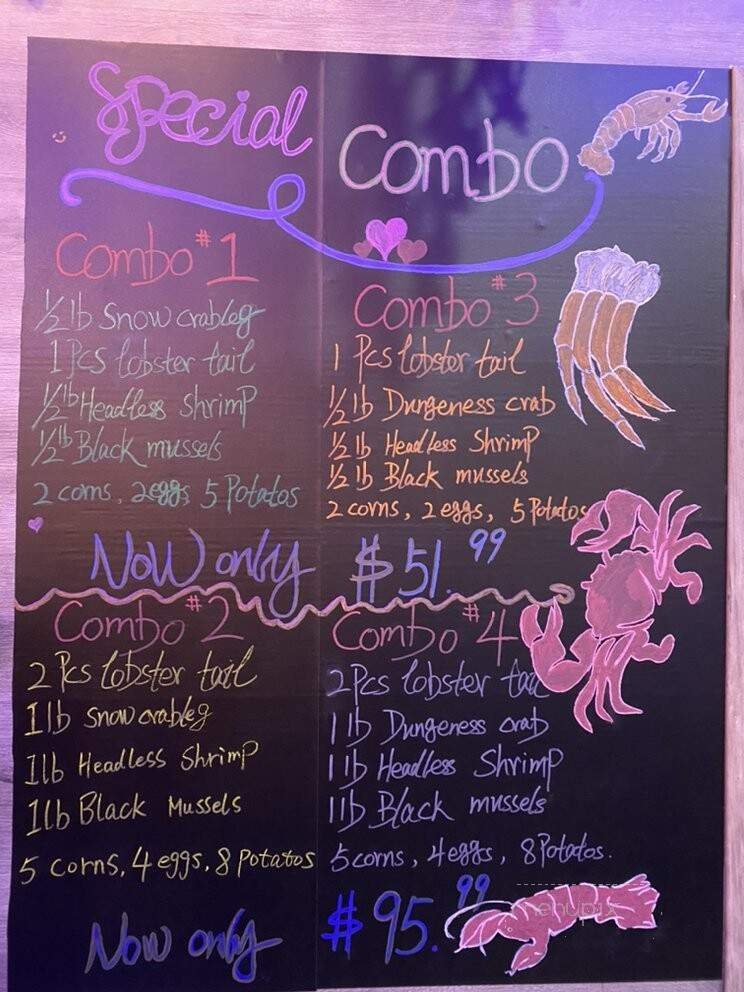 Special Combo
Combo #1
1/2 lb Snow crableg
1 Pcs lobster tail
1/2 lb Headless Shrimp
1/2 lb Black mussels
2 corns, 2 eggs, 5 Potatos
Combo #3
1 Pcs lobster tail
1/2 lb Dungeness crab
1/2 lb Headless Shrimp
1/2 lb Black mussels
2 corns, 2 eggs, 5 Potatos
Now only $51.99
Combo #2
2 Pcs lobster tail
1 lb Snow crableg
1 lb Headless Shrimp
1 lb Black Mussels
5 corns, 4 eggs, 8 Potatos
Combo #4
2 Pcs lobster tail
1 lb Dungeness crab
1 lb Headless Shrimp
1 lb Black mussels
5 corns, 4 eggs, 8 Potatos.
Now only $95.99
menupix